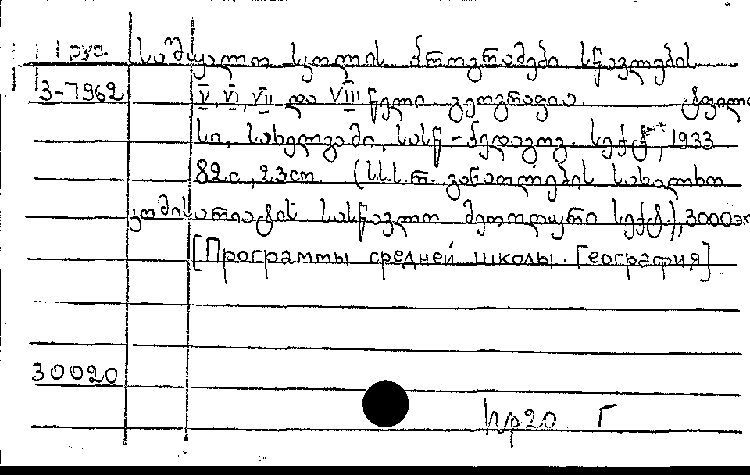 1 груз. საშუალო სკოლის პროგრამები სწავლების
3-7962 V, VI, VII და VIII წელი გეოგრაფია
სი, სახელგამი, სასწ-პედაგოგ. სექტ., 1933
82 с., 23 см (ს.ს.ს.რ. განათლების სახალხო
კომისარიატის სასწავლო მეთოდური სექტ.), 3000 эк
[Программы средней школы. География]
30020
пр20 Г